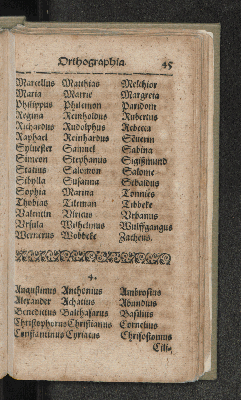 Orthographia. 45
Marcellus Matthias Melchior
Maria Matrie Margreta
Philippus Philemon Paridom
Regina Reinholdus Rubertus
Richardus Rudolphus Rebecca
Raphael Reinhardus Severin
Sylvester Samuel Sabina
Simeon Stephanus Sigißmund
Statius Salomon Salome
Sibylla Susanna Sebaldus
Sophia Martna Tönnies
Thobias Tileman Tibbeke
Valentin Vitus Vrbanus
Vrsula Wilhelmus Wulffgangus
Wernerus Wobbeke Zacheus.
4.
Augustinus Anthonius Ambrosius
Alexander Achatius Abundius
Benedictus Balthasarus Basilius
Christophorus Christianus Cornelius
Constantinus Cyriacus Chrisostomus
Cilia